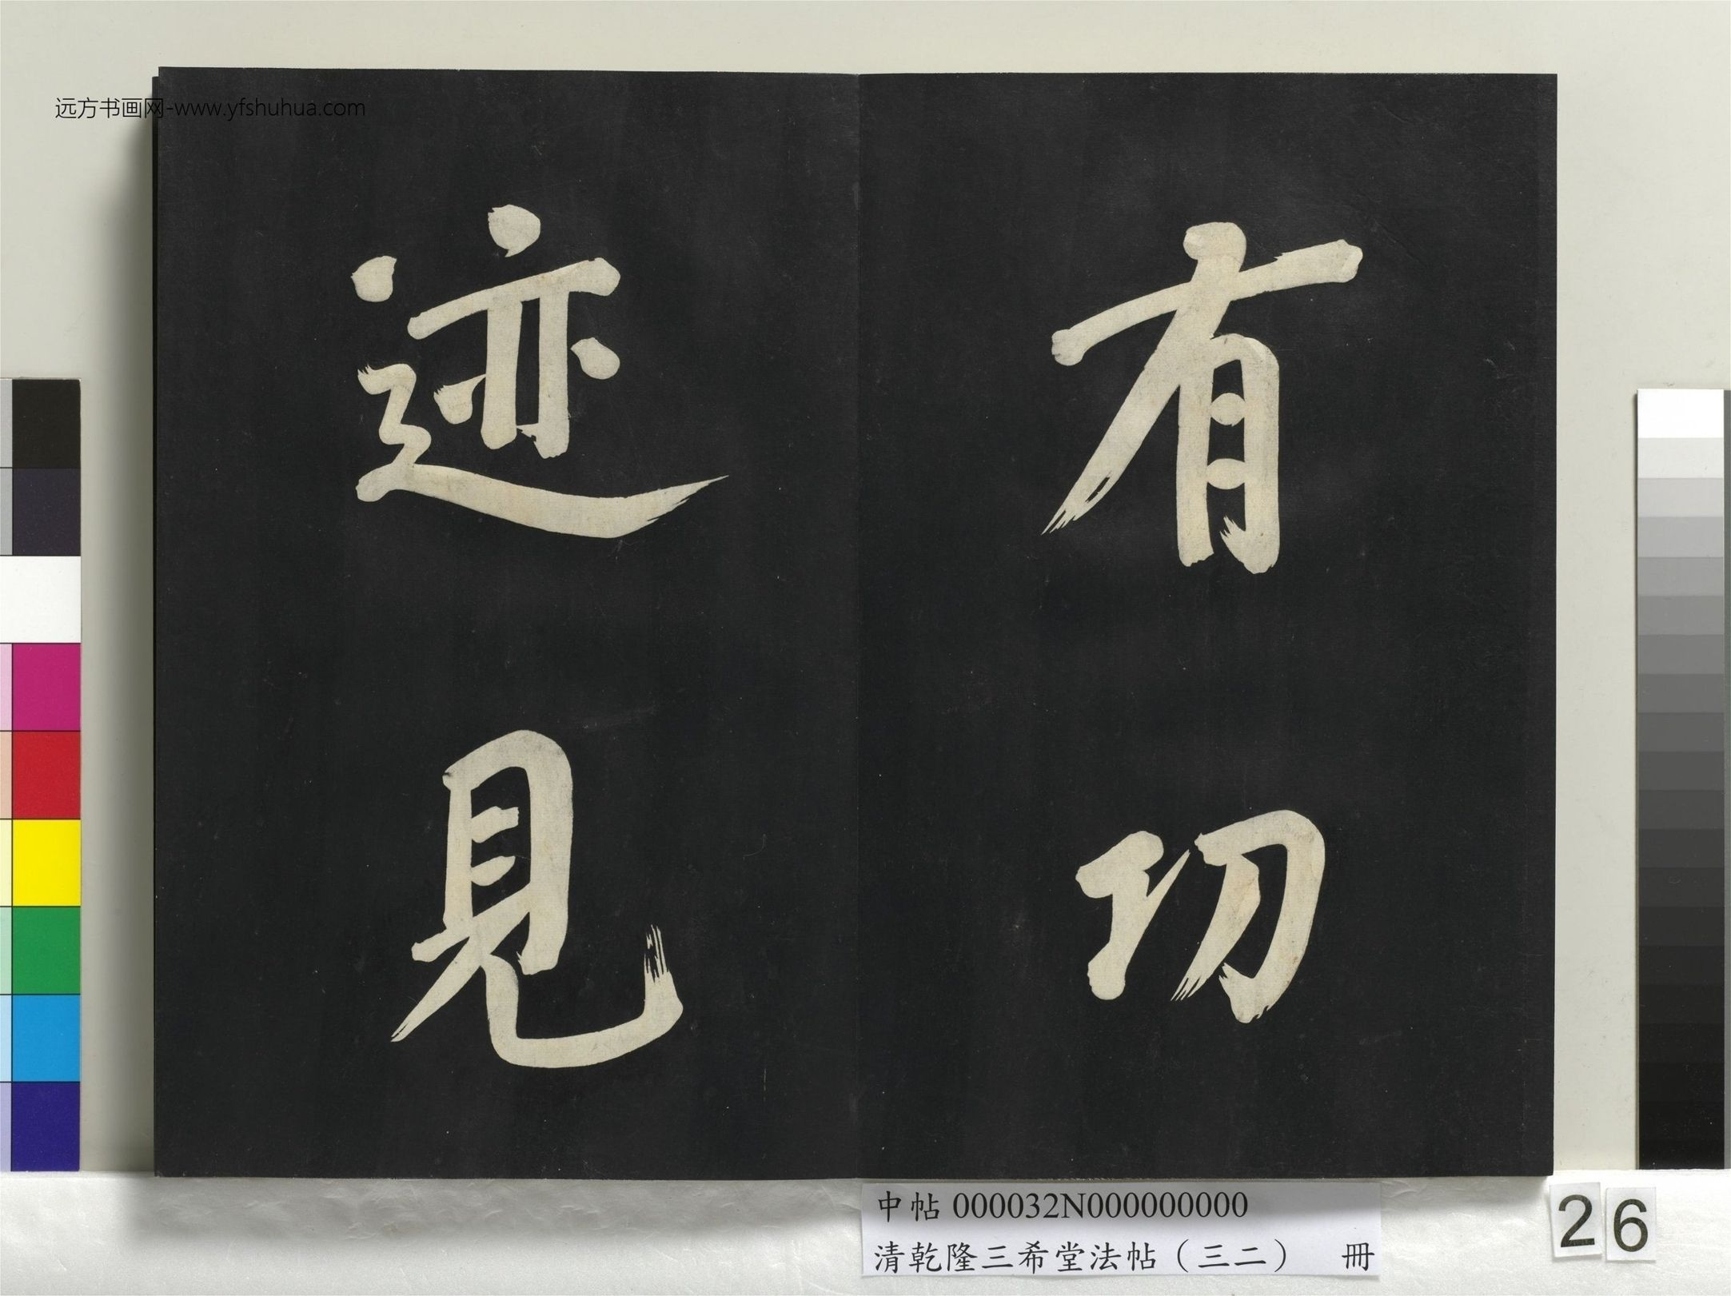 远方书画网-www.yfshuhua.com
有
功
迹
見
中帖 000032N000000000
清乾隆三希堂法帖（三二） 冊
26